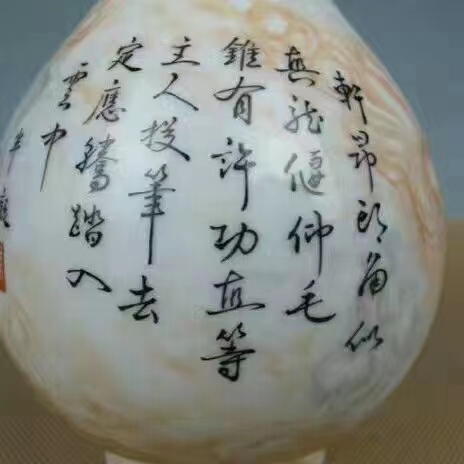 軒昂頭角似
真龍偃仰毛
錐有許功直等
主人投筆去
定應騰踏入
雲中